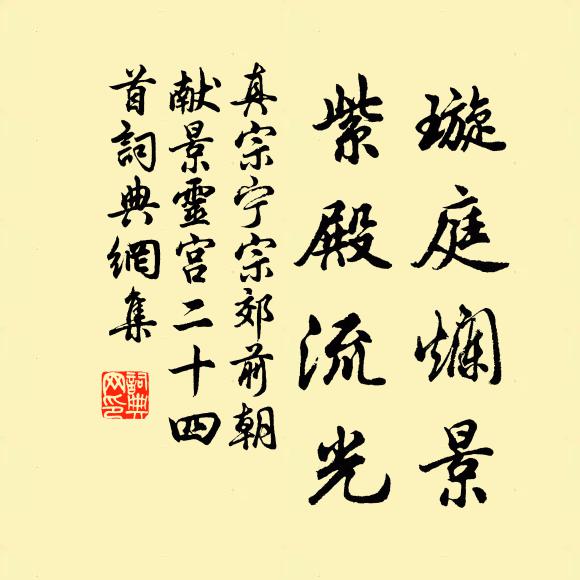 璇庭爛景
紫殿流光
真宗宁宗郊前朝
献景靈宫二十四
首詞典網集
詞典
网印